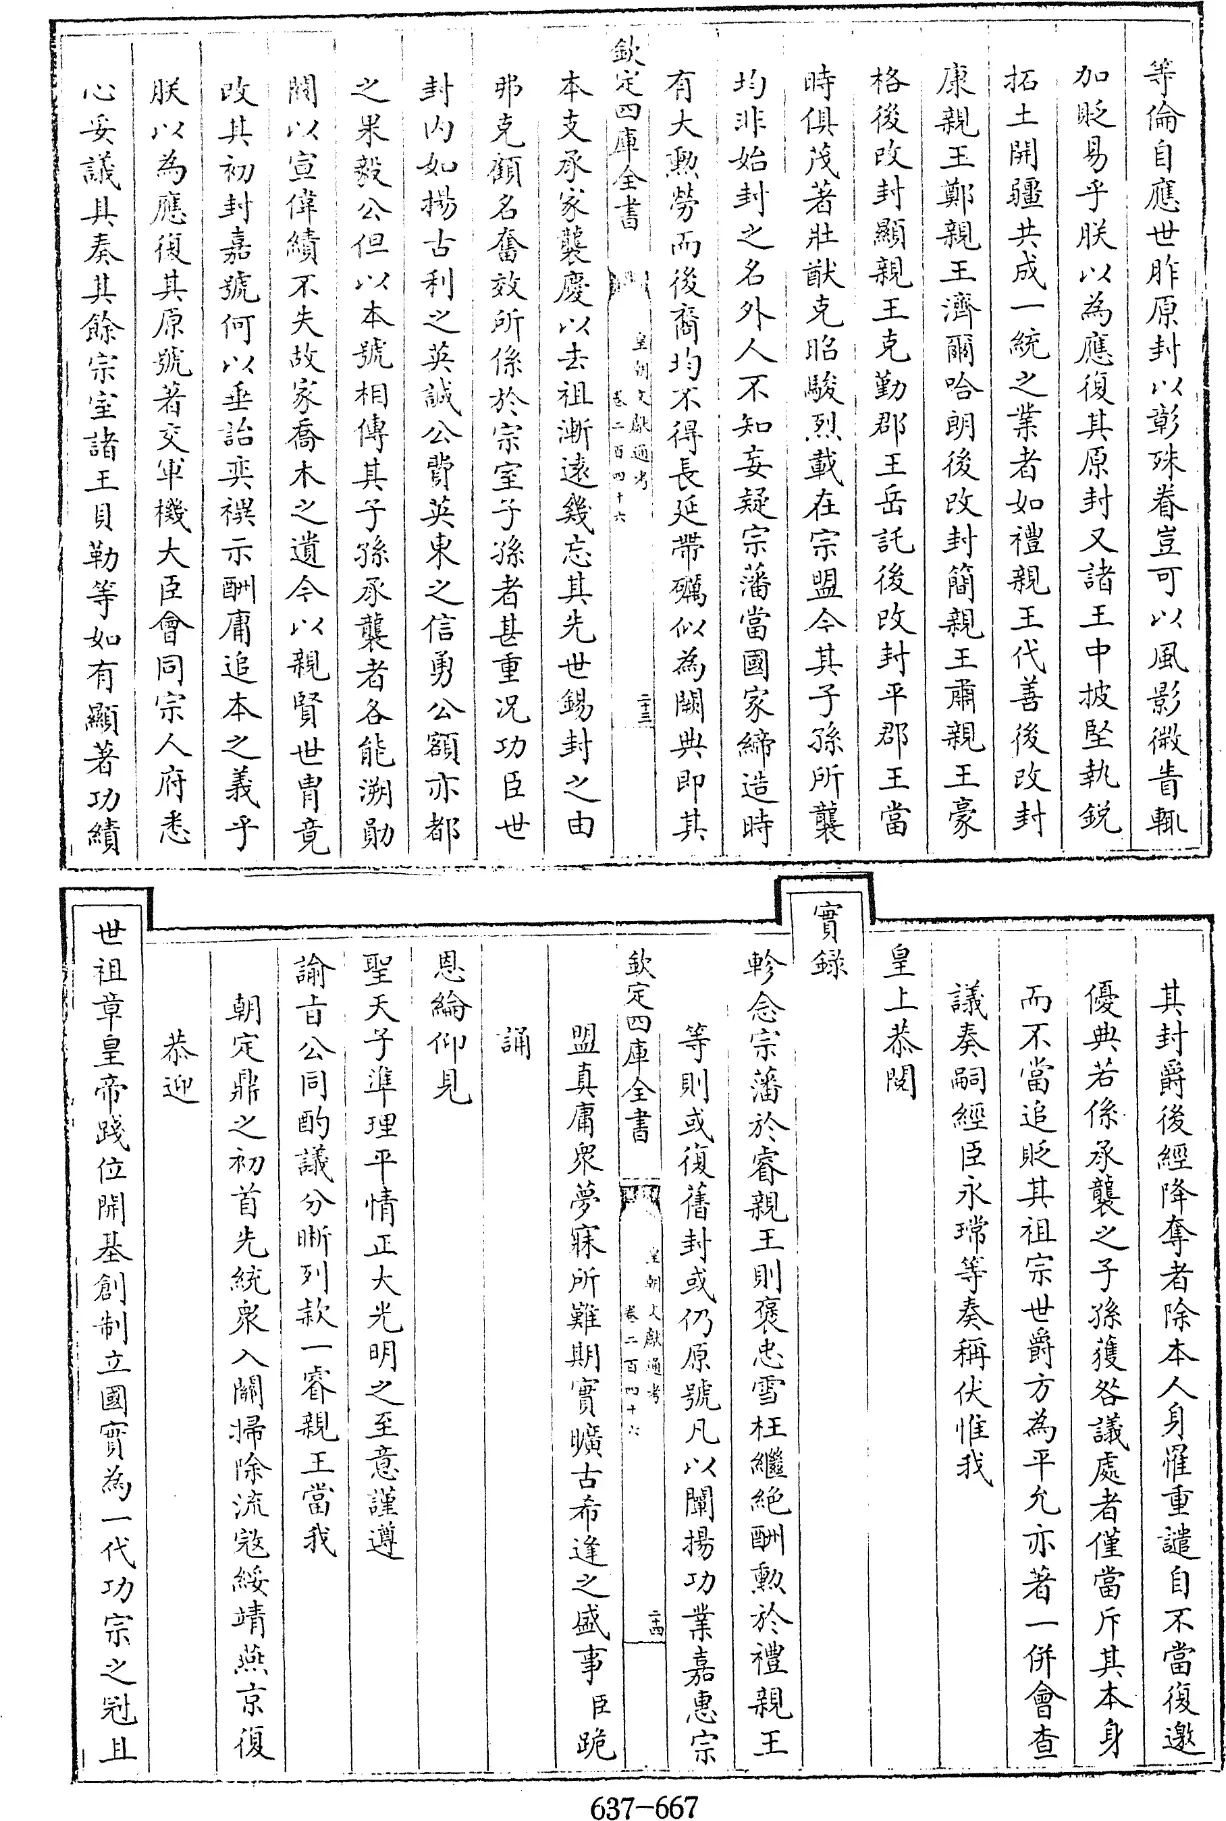 等倫自應世胙原封以彰殊眷豈可以風影微眚輒
加貶易乎朕以為應復其原封又諸王中披堅執銳
拓土開疆共成一統之業者如禮親王代善後改封
康親王鄭親王濟爾哈朗後改封簡親王肅親王豪
格後改封顯親王克勤郡王岳託後改封平郡王當
時俱茂著壯猷克昭駿烈載在宗盟今其子孫所襲
均非始封之名外人不知妄疑宗藩當國家締造時
有大勲勞而後裔均不得長延帶礪似為闕典即其
欽定四庫全書
皇朝文獻通考
卷二百四十六
二十三
本支承家襲慶以去祖漸遠幾忘其先世錫封之由
弗克顧名奮效所係於宗室子孫者甚重况功臣世
封内如揚古利之英誠公費英東之信勇公額亦都
之果毅公但以本號相傳其子孫承襲者各能溯勛
閥以宣偉績不失故家喬木之遺今以親賢世胄竟
改其初封嘉號何以垂詒奕禩示酬庸追本之義乎
朕以為應復其原號著交軍機大臣會同宗人府悉
心妥議具奏其餘宗室諸王貝勒等如有顯著功績
其封爵後經降奪者除本人身罹重譴自不當復邀
優典若係承襲之子孫獲咎議處者僅當斥其本身
而不當追貶其祖宗世爵方為平允亦著一併會查
議奏嗣經臣永瑺等奏稱伏惟我
皇上恭閲
實録
軫念宗藩於睿親王則褒忠雪枉繼絶酬勲於禮親王
等則或復舊封或仍原號凡以闡揚功業嘉惠宗
欽定四庫全書
皇朝文獻通考
卷二百四十六
二十四
盟真庸衆夢寐所難期實曠古希逢之盛事臣跪
誦
恩綸仰見
聖天子準理平情正大光明之至意謹遵
諭旨公同酌議分晰列款一睿親王當我
朝定鼎之初首先統衆入關掃除流寇綏靖燕京復
恭迎
世祖章皇帝踐位開基創制立國實為一代功宗之冠且
637-667